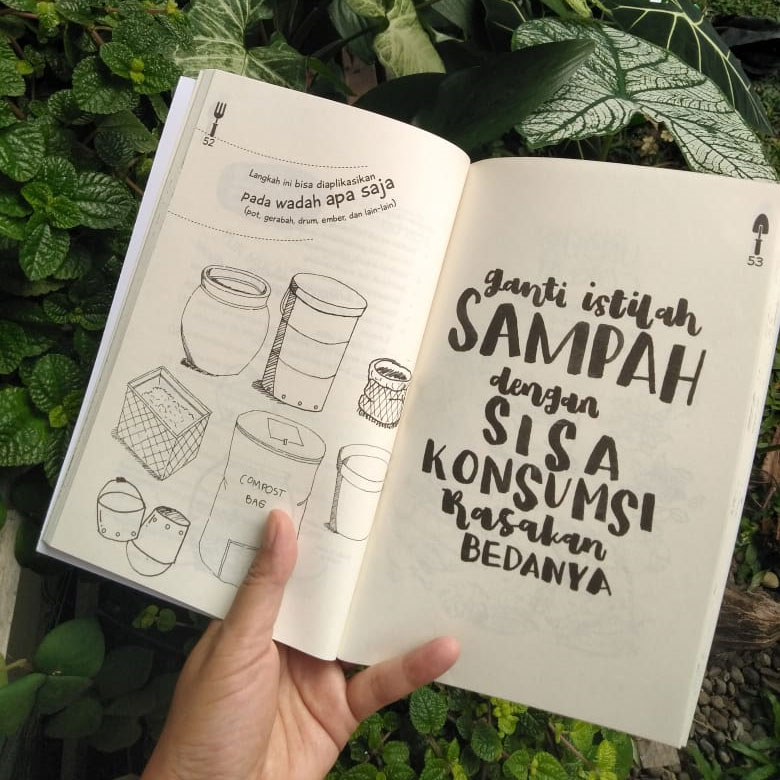 52
Langkah ini bisa diaplikasikan
pada wadah apa saja
(pot, gerabah, drum, ember, dan lain-lain)
COMPOST
BAG
53
ganti istilah
SAMPAH
dengan
SISA
KONSUMSI
Rasakan
BEDANYA